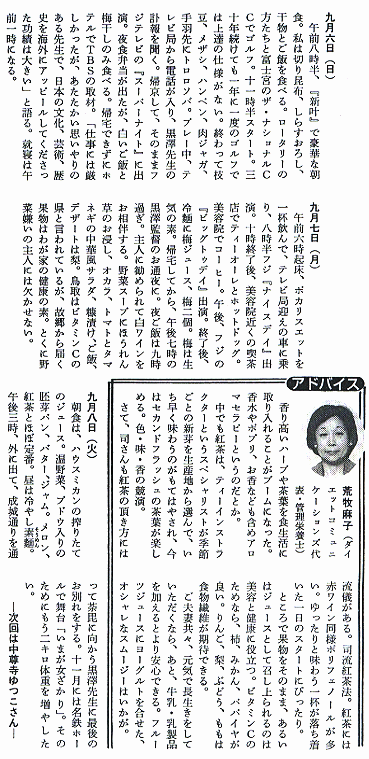 九月六日(日)
午前八時半、『新叶』で豪華な朝
食。私は切り昆布、しらすおろし、
干物とご飯を食べる。ロータリーの
方たちと富士宮のザ・ナショナルC
Cでゴルフ。十一時半スタート。三
十年続けても一年に一度のゴルフで
は上達の仕様がない。終わって枝
豆、メザシ、ハンペン、肉ジャガ、
手羽先にトロロソバ。プレー中、テ
レビ局から電話が入り、黒澤先生の
訃報を聞く。帰京して、そのままフ
ジテレビの『スーパーナイト』に出
演。夜食弁当が出たが、白いご飯と
梅干しのみ食べる。帰宅できずにホ
テルでTBSの取材。「仕事には厳
しかったが、あたたかい思いやりの
ある先生で、日本の文化、芸術、歴
史を海外にアッピールしてくださっ
た功績は大きい」と語る。就寝は午
前一時になる。
九月七日(月)
午前六時起床、ポカリスエットを
一杯飲んで、テレビ局迎えの車に乗
り、八時半フジ『ナイスデイ』出
演。十時終了後、美容院近くの喫茶
店でティーオレとホットドッグ。
美容院でコーヒー。午後、フジの
『ビッグトゥデイ』出演。終了後、
冷麺に梅ジュース、梅二個。梅は生
気の素。帰宅してから、午後七時の
黒澤監督のお通夜に。夜ご飯は九時
過ぎ。主人に勧められて白ワインを
お相伴する。野菜スープにほうれん
草のお浸し、オカラ、トマトとタマ
ネギの中華風サラダ、糠漬け、ご飯、
デザートは梨。鳥取はビタミンCの
県と言われているが、故郷から届く
果物はわが家の健康の素。とくに野
菜嫌いの主人には欠かせない。
九月八日(火)
朝食は、ハウスミカンの搾りたて
のジュース。温野菜、ブドウ入りの
胚芽パン、バター、ジャム。メロン、
紅茶とほぼ定番。昼は冷やし素麺。
午後三時、外に出て、成城通りを通
って荼毘に向かう黒澤先生に最後の
お別れをする。十一月には名鉄ホー
ルで舞台「いまが女ざかり」。その
ためにもう一キロ体重を増やした
い。
―次回は中尊寺ゆつこさん―
アドバイス
荒牧麻子(ダイ
エットコミュニ
ケーションズ代
表・管理栄養士)
香り高いハーブや茶葉を食生活に
取り入れることがブームになった。
香水やポプリ、お香なども含めアロ
マセラピーというのだとか。
中でも紅茶は、ティーインストラ
クターというスペシャリストが季節
ごとの新芽を生産地から選んで、い
ち早く味わうのがもてはやされ、今
はセカンドフラッシュの茶葉が楽し
める。色・味・香の競演。
さて、司さんも紅茶の頂き方には
流儀がある。司流紅茶法。紅茶には
赤ワイン同様ポリフェノールが多
い。ゆったりと味わう一杯が落ち着
いた一日のスタートにぴったり。
ところで果物をそのまま、あるい
はジュースとして召し上られるのは
美容と健康に役立つ。ビタミンCの
ためなら、柿、みかん、パパイヤが
良い。りんご、梨、ぶどう、ももは
食物繊維が期待できる。
ご夫妻共々、元気で長生きをして
いただくなら、あと、牛乳・乳製品
を加えるとより安心できる。フルー
ツジュースにヨーグルトを合せた、
オシャレなスムージーはいかが。